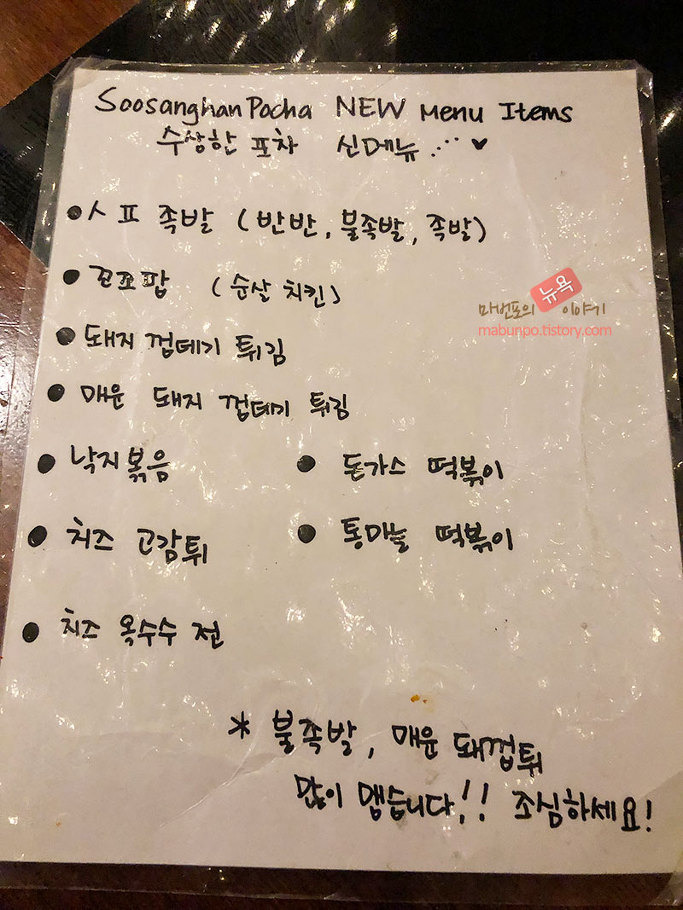 Soosanghan Pocha NEW Menu Items
수상한 포차 신메뉴 ... ♥
• ㅅㅍ 족발 (반반, 불족발, 족발)
• 꼰쪼팝 (순살 치킨)
• 돼지 껍데기 튀김
• 매운 돼지 껍데기 튀김
• 낙지볶음
• 돈가스 떡볶이
• 치즈 고감튀
• 통마늘 떡볶이
• 치즈 옥수수 전
* 불족발, 매운 돼껍튀
많이 맵습니다!! 조심하세요!
마번포의 뉴욕 이야기
mabunpo.tistory.com